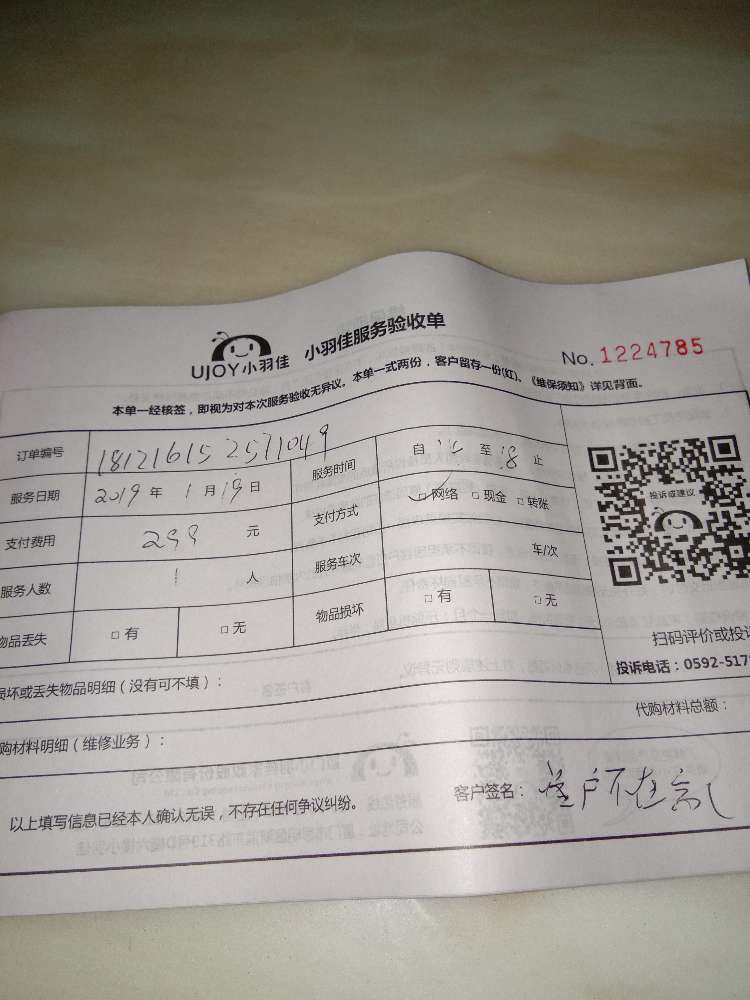 UJOY小羽佳 小羽佳服务验收单
No. 1224785
本单一经核签，即视为对本次服务验收无异议。本单一式两份，客户留存一份(红)。《维保须知》详见背面。
订单编号 181216152571049 服务时间 自 至 18 止
服务日期 2019年1月19日 支付方式 ☑网络 □现金 □转账
支付费用 299 元 服务车次 车/次
服务人数 1 人 物品损坏 □有 □无
物品丢失 □有 □无
投诉或建议
扫码评价或投
投诉电话：0592-517
损坏或丢失物品明细（没有可不填）：
购材料明细（维修业务）： 代购材料总额：
以上填写信息已经本人确认无误，不存在任何争议纠纷。 客户签名： 客户不在家